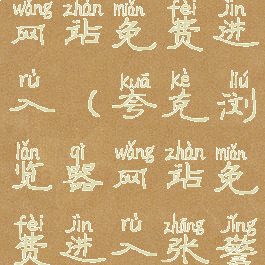 wǎng zhàn miǎn fèi jìn
网站免费进
rù kuā kè liú
入（夸克浏
lǎn qì wǎng zhàn miǎn
览器网站免
fèi jìn rù zhāng jǐng
费进入张警